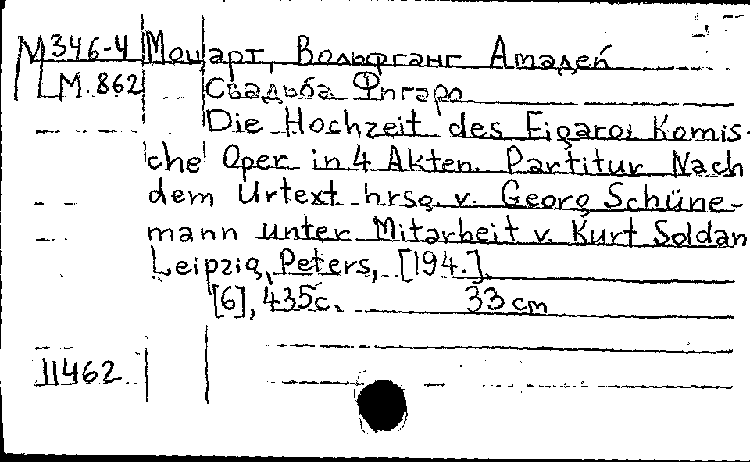 М346-4 Моцарт, Вольфганг Амадей
М.862 Свадьба Фигаро
Die Hochzeit des Figaro: Komis-
che Oper in 4 Akten. Partitur Nach
dem Urtext hrsg. v. Georg Schüne-
mann unter Mitarbeit v. Kurt Soldan
Leipzig, Peters, [194.]
[6], 435с. 33 cm
11462